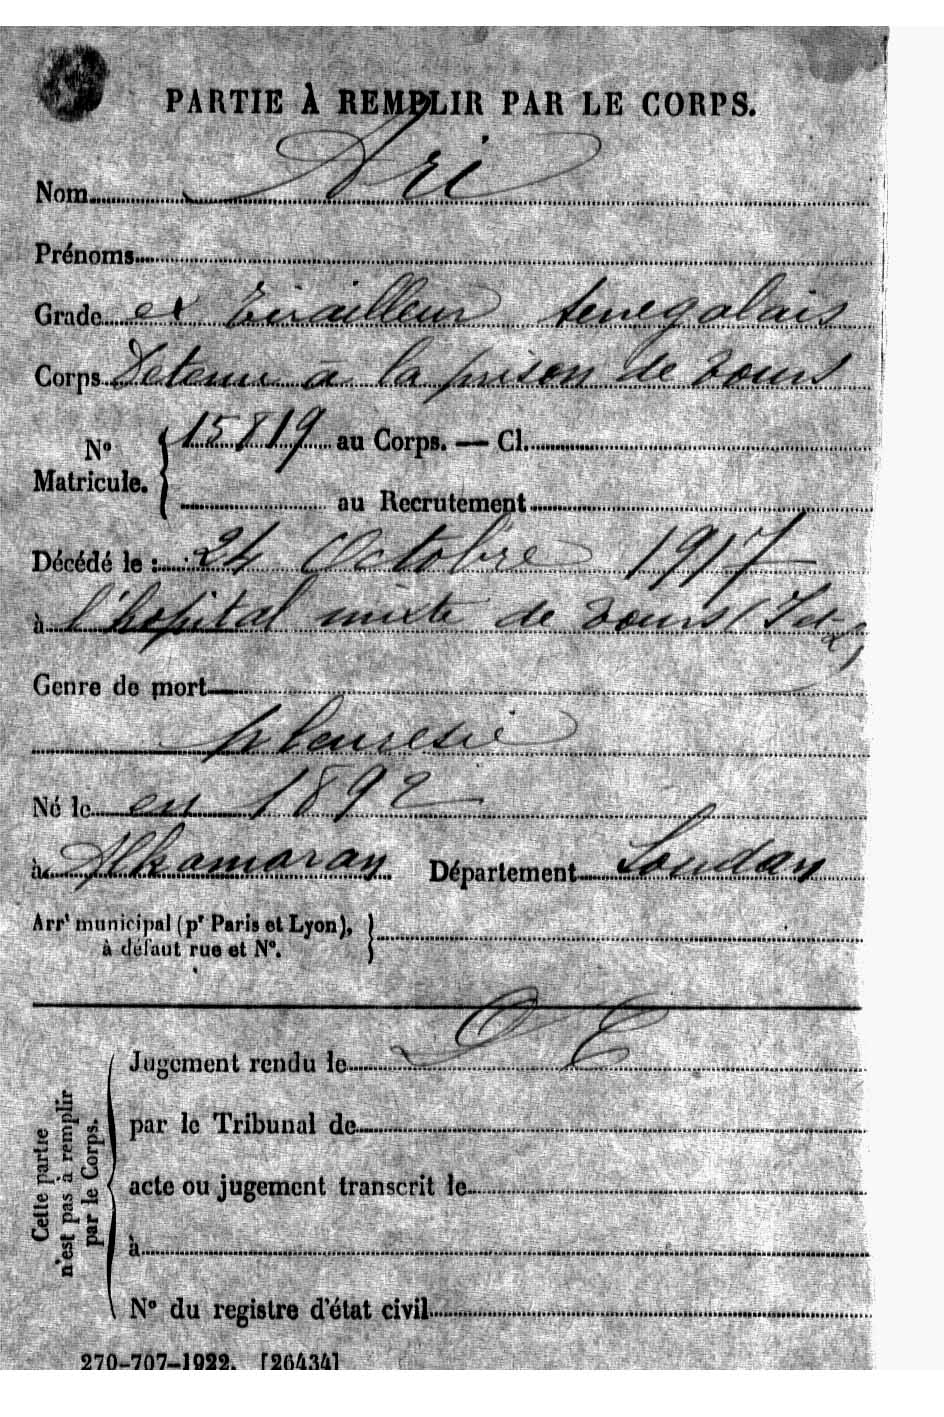 PARTIE À REMPLIR PAR LE CORPS.
Nom Ari
Prénoms
Grade ex tirailleur senegalais
Corps Détenu à la prison de Tours
N° Matricule. 15819 au Corps. — Cl.
au Recrutement
Décédé le : 24 Octobre 1917
à l'hopital mixte de Tours (I et L)
Genre de mort
pleuresie
Né le en 1892
à Alkamaray Département Soudan
Arrt municipal (pr Paris et Lyon),
à défaut rue et N°.
Cette partie
n'est pas à remplir
par le Corps.
Jugement rendu le
par le Tribunal de
acte ou jugement transcrit le
à
N° du registre d'état civil
270-707-1922. [26434]